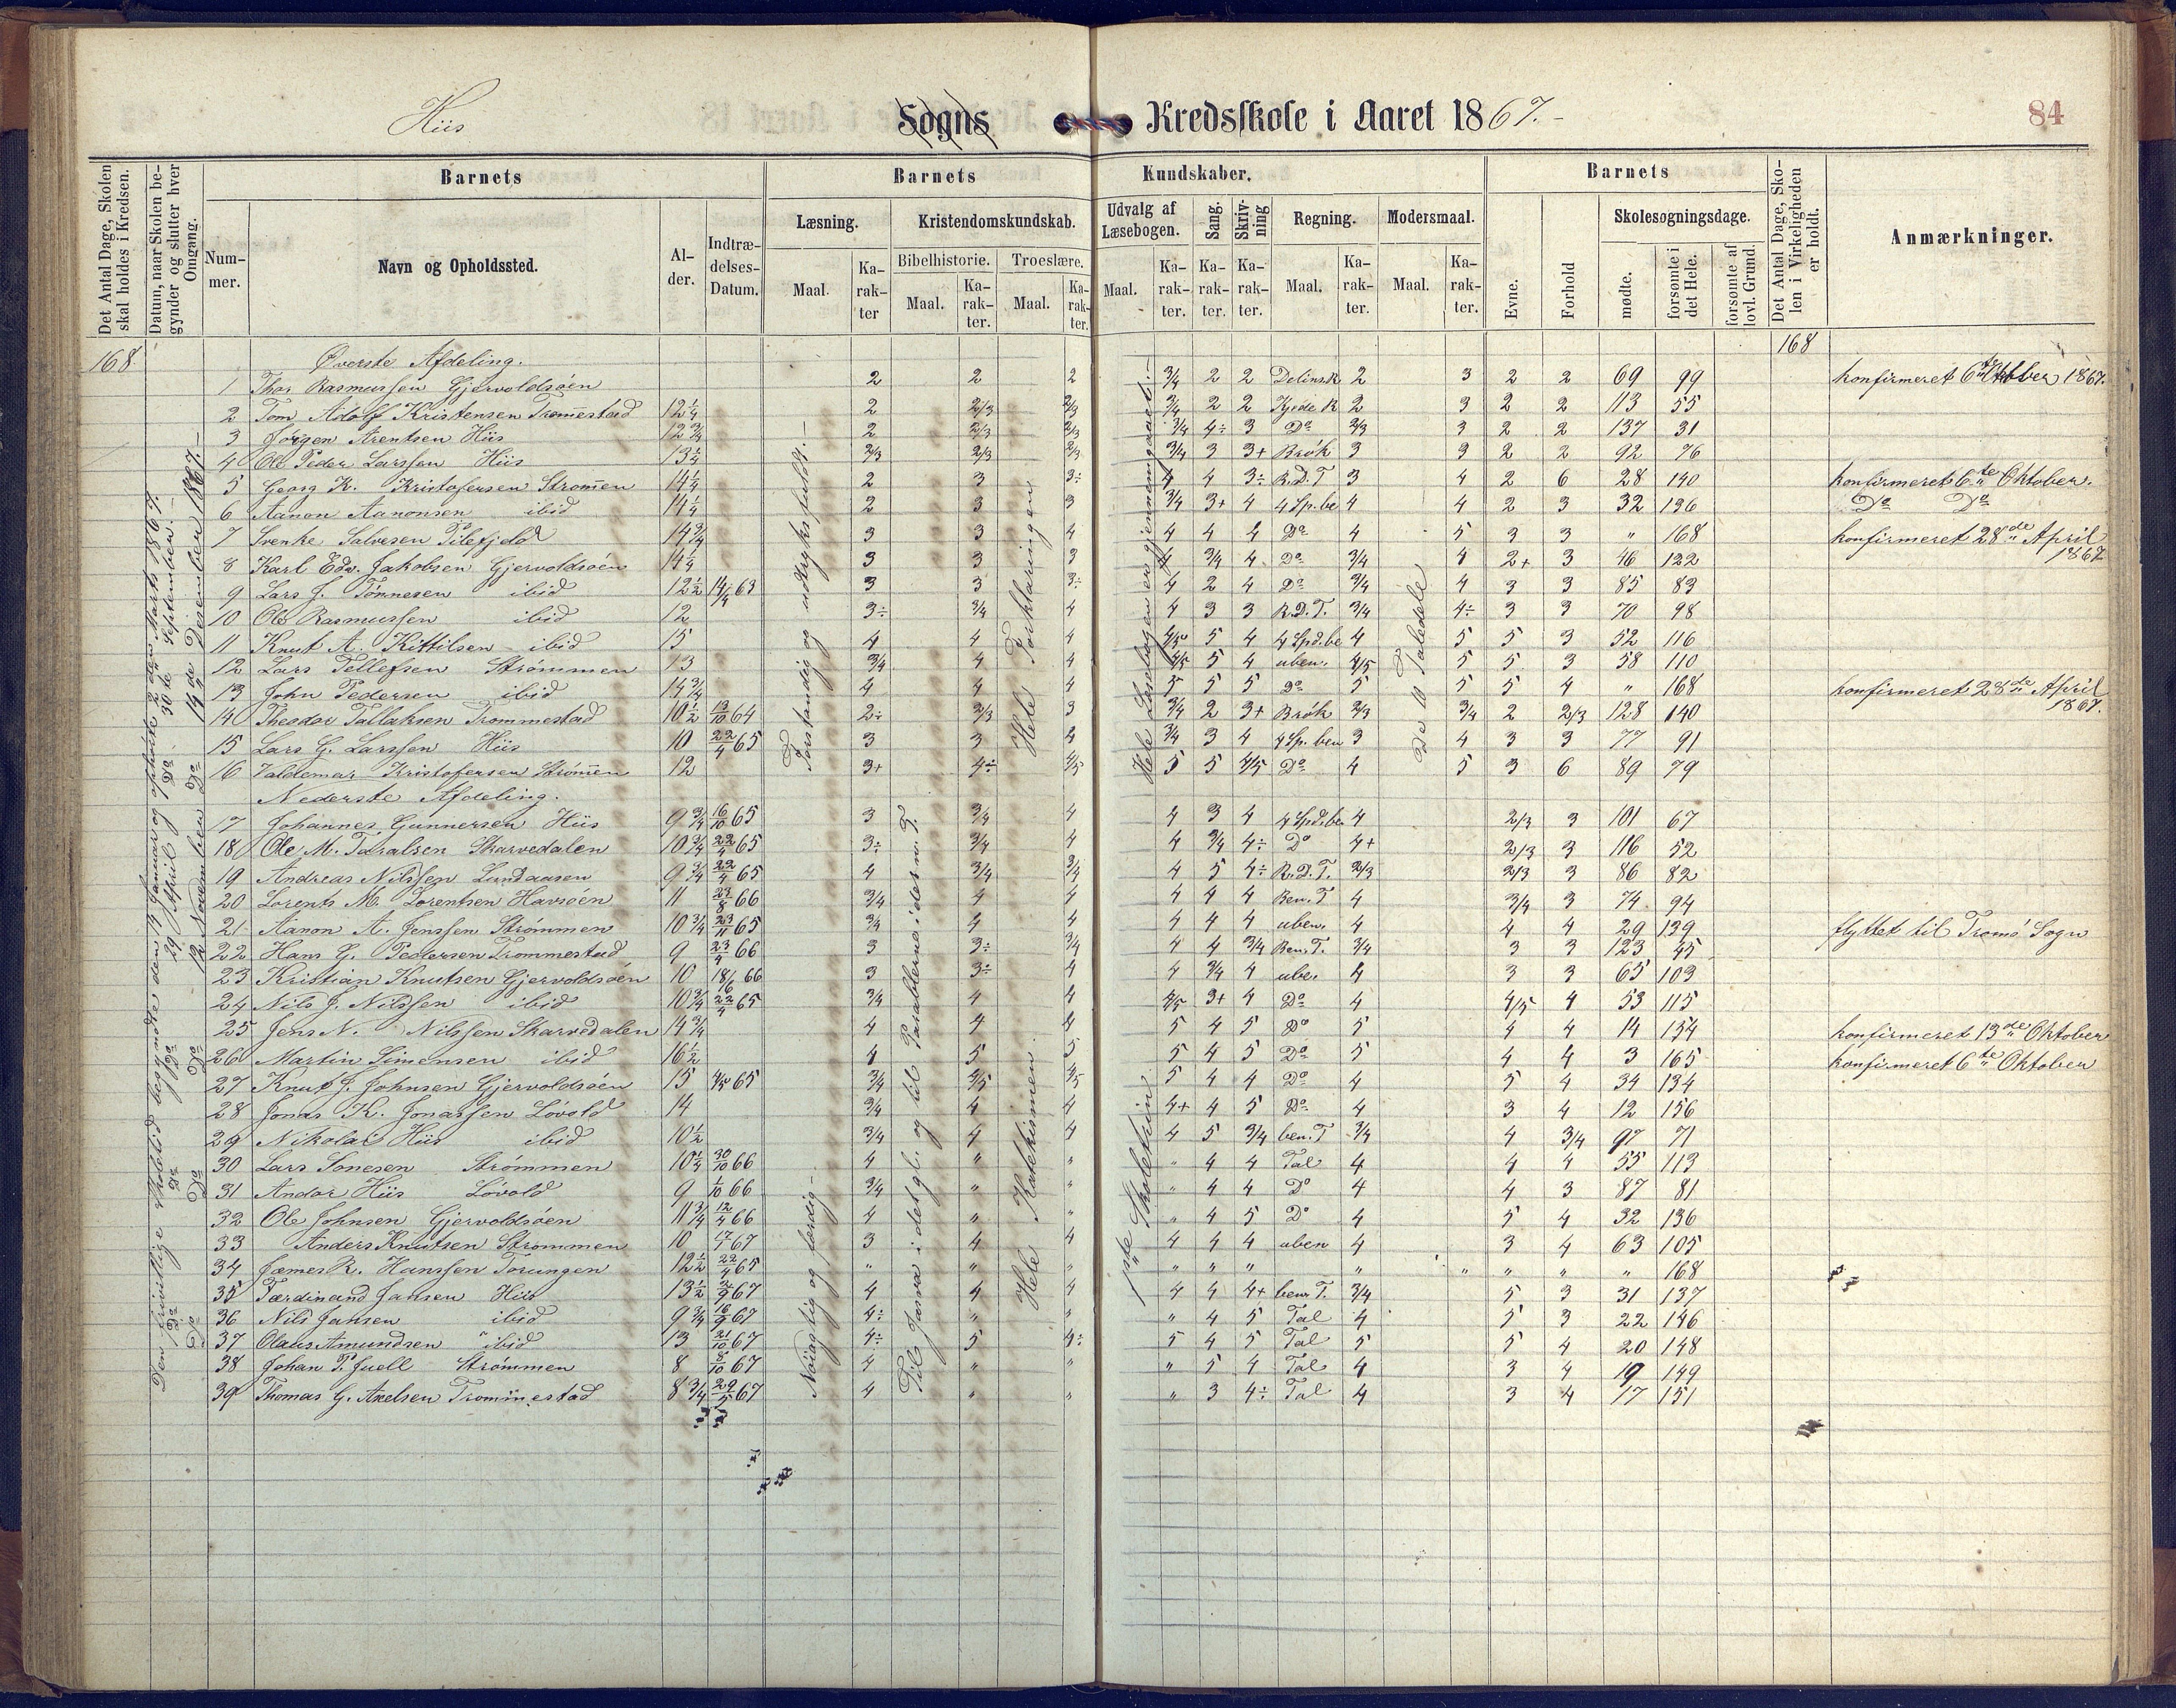 Hiis Sogns Kredsskole i Aaret 1867.
84
Det Antal Dage, Skolen skal holdes i Kredsen.
Datum, naar Skolen begynder og slutter hver Omgang.
Barnets
Nummer.
Navn og Opholdssted.
Alder.
Indtrædelses-Datum.
Barnets Kundskaber.
Læsning.
Maal.
Karakter
Kristendomskundskab.
Bibelhistorie.
Maal.
Karakter.
Troeslære.
Maal.
Karakter.
Udvalg af Læsebogen.
Maal.
Karakter.
Sang.
Karakter.
Skrivning
Karakter.
Regning.
Maal.
Karakter.
Modersmaal.
Maal.
Karakter.
Barnets
Evne.
Forhold
Skolesøgningsdage.
mødte.
forsømte i det Hele.
forsømte af lovl. Grund.
Det Antal Dage, Skolen i Virkeligheden er holdt.
Anmærkninger.
168 Øverste Afdeling. 168
1 Thor Rasmussen Gjervoldsøen 2 2 2 3/4 2 2 2 3 2 2 69 99 konfirmeret 6te Oktober 1867.
2 Tom Adolf Kristensen Tromestad 12 1/4 2 2/3 2/3 3/4 2 2 2 3 2 2 113 55
3 Jørgen Arentsen Hiis 12 3/4 2 2/3 2/3 3/4 4÷ 3 Do 2/3 3 2 2 137 31
4 Ole Peder Larssen Hiis 13 1/4 2/3 2/3 2/3 3/4 3 3+ Brøk 3 3 2 2 92 76
5 Georg K. Kristofersen Strømen 14 1/4 2 3 3÷ 4 4 3÷ R.D.T 3 4 2 6 28 140 konfirmeret 6te Oktober.
6 Aanon Aanonsen ibid 14 1/4 2 3 3 3/4 3+ 4 4 Sp.be 4 4 2 3 32 136 Do Do
7 Svenke Salvesen Pilefjeld 14 3/4 3 3 4 4 4 4 Do 4 5 3 3 " 168 konfirmeret 28de April 1867
8 Karl Edv. Jakobsen Gjervoldsøen 14 1/4 3 3 3 4 3/4 4 Do 3/4 4 2+ 3 46 122
9 Lars J. Tønnesen ibid 12 1/2 14/4 63 3 3 3÷ 4 2 4 Do 3/4 4 3 3 85 83
10 Ole Rasmussen ibid 12 3÷ 3/4 4 4 3 3 R.D.T. 3/4 4÷ 3 3 70 98
11 Knut A. Kittilsen ibid 15 4 4 4 4/5 5 4 4 Spd.be 4 5 5 3 52 116
12 Lars Tellefsen Strømmen 13 3/4 4 4 4/5 5 4 uben. 4/5 5 5 3 58 110
13 John Pedersen ibid 14 3/4 4 4 4 5 5 5 Do 5 5 5 4 " 168 konfirmeret 28de April 1867.
14 Theodor Tallaksen Trommestad 10 1/2 13/10 64 2÷ 2/3 3 3/4 2 3+ Brøk 2/3 3/4 2 2/3 128 140
15 Lars G. Larssen Hiis 10 22/4 65 3 3 4 3/4 3 4 4 Sp.ben 3 4 3 3 77 91
16 Valdemar Kristofersen Strømen 12 3+ 4÷ 4/5 5 5 4/5 Do 4 5 3 6 89 79
Nederste Afdeling.
17 Johannes Gunnersen Hiis 9 3/4 16/10 65 3 3/4 4 4 3 4 4 Spd.be 4 2/3 3 101 67
18 Ole M. Taralsen Skarvedalen 10 3/4 22/4 65 3÷ 3/4 4 4 3/4 4÷ Do 4+ 2/3 3 116 52
19 Andreas Nilssen Lundaasen 9 3/4 22/4 65 4 3/4 3/4 4 5 4÷ R.D.T. 2/3 2/3 3 86 82
20 Lorents M. Lorentsen Havsøen 11 23/8 66 3/4 4 4 4 4 4 Ben.T 4 3/4 3 74 94
21 Aanon A. Jenssen Strømmen 10 3/4 23/11 65 3/4 4 4 4 4 4 uben. 4 4 4 29 139 flyttet til Tromø Sogn
22 Hans G. Pedersen Trommestad 9 23/4 66 3 3÷ 3/4 4 4 3/4 Ben.T. 3/4 3 3 123 45
23 Kristian Knutsen Gjervoldsøen 10 18/6 66 3 3÷ 4 4 3/4 4 ube. 4 3 3 65 103
24 Nils J. Nilssen ibid 10 3/4 22/4 65 3/4 4 4 4/5 3+ 4 Do 4 4/5 4 53 115
25 Jens N. Nilssen Skarvedalen 14 3/4 4 4 4 5 4 5 Do 5 4 4 14 154 konfirmeret 13de Oktober
26 Martin Simensen ibid 16 1/2 4 5 5 5 4 5 Do 5 4 4 3 165 konfirmeret 6te Oktober
27 Knut J. Johnsen Gjervoldsøen 15 4/5 65 3/4 4/5 4/5 5 4 4 Do 4 5 4 34 134
28 Jonas K. Jonassen Løvold 14 3/4 4 4 4+ 4 5 Do 4 3 4 12 156
29 Nikolai Hiis ibid 10 1/2 3/4 4 4 4 5 3/4 ben.T 3/4 4 3/4 97 71
30 Lars Sonesen Strømmen 10 1/4 30/10 66 4 " " " 4 4 Tal 4 4 4 55 113
31 Andor Hiis Løvold 9 1/10 66 3/4 " " " 4 4 Do 4 4 3 87 81
32 Ole Johnsen Gjervoldsøen 11 3/4 12/4 66 4 " " " 4 5 Do 4 5 4 32 136
33 Anders Knutsen Strømmen 10 17/1 67 3 4 4 4 4 4 uben 4 3 4 63 105
34 Jæmes R. Hanssen Torungen 12 1/2 22/4 65 " " " " " " " " " " " 168
35 Færdinand Jansen Hiis 13 1/2 3/9 67 4 4 4 4 4 4+ ben. T. 3/4 5 3 31 137
36 Nils Jansen ibid 9 3/4 16/9 67 4÷ " " " 4 5 Tal 4 5 3 22 146
37 Olaus Amundsen ibid 13 21/10 67 4÷ 5 4÷ 5 4 5 Tal 5 5 4 20 148
38 Johan P. Juell Strømmen 8 8/10 67 4 " " " 5 4 Tal 4 3 4 19 149
39 Thomas G. Axelsen Trommestad 8 3/4 29/5 67 4 " " " 3 4÷ Tal 4 3 4 17 151
Forstandig og udtryksfuldt.
Nøiagtig og færdig
Til Josva i det gl. og til Parablerne i det n. T.
Hele Forklaringen
Hele Katekismen.
Hele Læsebogen er gjennemgaaet.
1ste Skoletrin
De 10 Taledele